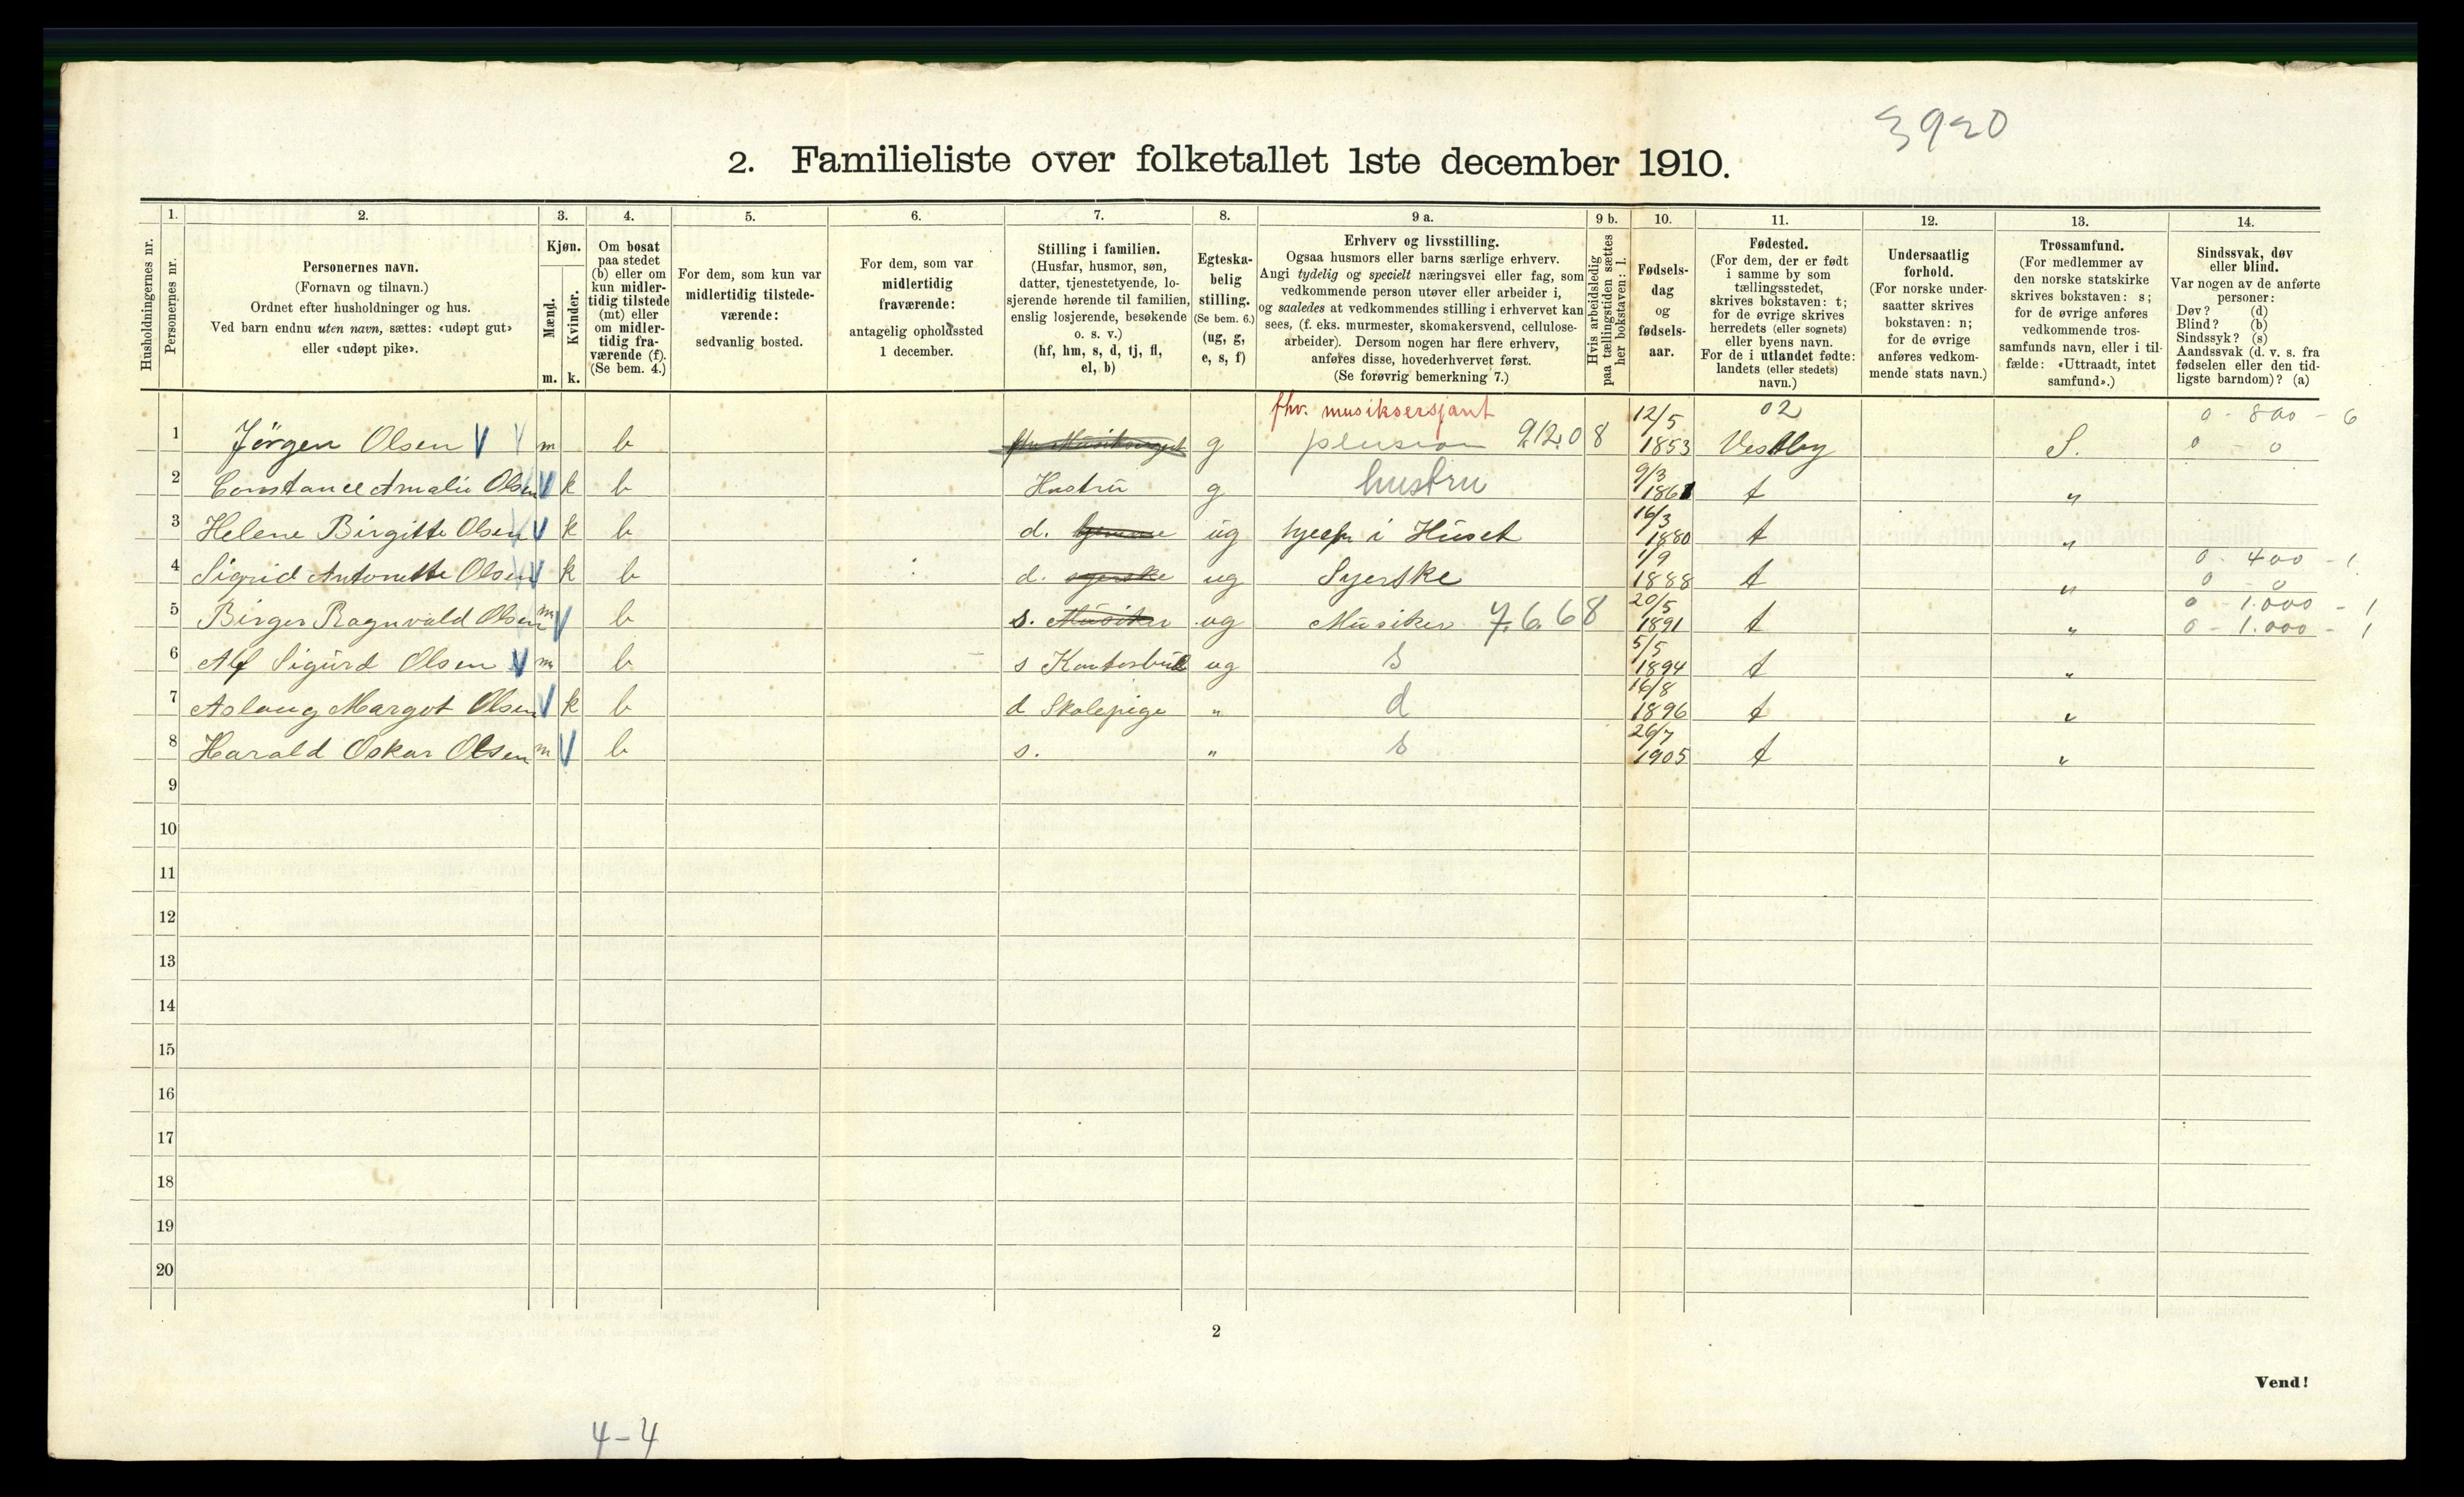 3920
2. Familieliste over folketallet 1ste december 1910.
Husholdningernes nr.
1. Personernes nr.
2. Personernes navn. (Fornavn og tilnavn.) Ordnet efter husholdninger og hus. Ved barn endnu uten navn, sættes: «udøpt gut» eller «udøpt pike».
3. Kjøn. Mænd. m. Kvinder. k.
4. Om bosat paa stedet (b) eller om kun midlertidig tilstede (mt) eller om midlertidig fraværende (f). (Se bem. 4.)
5. For dem, som kun var midlertidig tilstedeværende: sedvanlig bosted.
6. For dem, som var midlertidig fraværende: antagelig opholdssted 1 december.
7. Stilling i familien. (Husfar, husmor, søn, datter, tjenestetyende, losjerende hørende til familien, enslig losjerende, besøkende o. s. v.) (hf, hm, s, d, tj, fl, el, b)
8. Egteskabelig stilling. (Se bem. 6.) (ug, g, e, s, f)
9 a. Erhverv og livsstilling. Ogsaa husmors eller barns særlige erhverv. Angi tydelig og specielt næringsvei eller fag, som vedkommende person utøver eller arbeider i, og saaledes at vedkommendes stilling i erhvervet kan sees, (f. eks. murmester, skomakersvend, cellulosearbeider). Dersom nogen har flere erhverv, anføres disse, hovederhvervet først. (Se forøvrig bemerkning 7.)
9 b. Hvis arbeidsledig paa tællingstiden sættes her bokstaven: l.
10. Fødselsdag og fødselsaar.
11. Fødested. (For dem, der er født i samme by som tællingsstedet, skrives bokstaven: t; for de øvrige skrives herredets (eller sognets) eller byens navn. For de i utlandet fødte: landets (eller stedets) navn.)
12. Undersaatlig forhold. (For norske undersaatter skrives bokstaven: n; for de øvrige anføres vedkommende stats navn.)
13. Trossamfund. (For medlemmer av den norske statskirke skrives bokstaven: s; for de øvrige anføres vedkommende trossamfunds navn, eller i tilfælde: «Uttraadt, intet samfund».)
14. Sindssvak, døv eller blind. Var nogen av de anførte personer: Døv? (d) Blind? (b) Sindssyk? (s) Aandssvak (d. v. s. fra fødselen eller den tidligste barndom)? (a)
fhv. musiksersjant 12/5 02 0 - 800 - 6
1 Jörgen Olsen V m b g pension 912.08 1853 Vestby S. 0 0
2 Constance Amalie Olsen V k b Hustru g hustru 9/3 1861 t "
3 Helene Birgitte Olsen V k b d. ug hjelp i Huset 16/3 1880 t "
4 Sigrid Antonette Olsen V k b d. syerske ug Syerske 1/9 1888 t " 0 - 400 - 1 0 - 0
5 Birger Ragnvald Olsen m V b s. Musiker ug Musiker 7.6.68 20/5 1891 t " 0 - 1.000 - 1 0 - 1.000 - 1
6 Alf Sigurd Olsen V m b s Kontorbud ug s 5/5 1894 t "
7 Aslaug Margot Olsen V k b d Skolepige " d 16/8 1896 t "
8 Harald Oskar Olsen m V b s. " s 26/7 1905 t "
9
10
11
12
13
14
15
16
17
18
19
20
2
Vend!
4-4